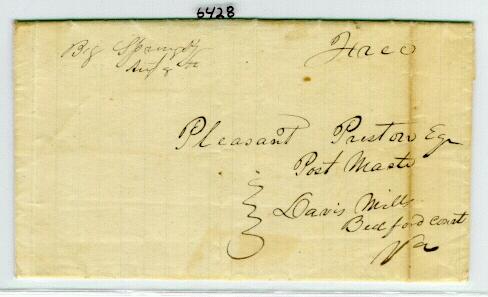 6428
Big Spring
Free
Pleasant Preston Esqr
Post Master
Davis Mills
Bedford Count
Va